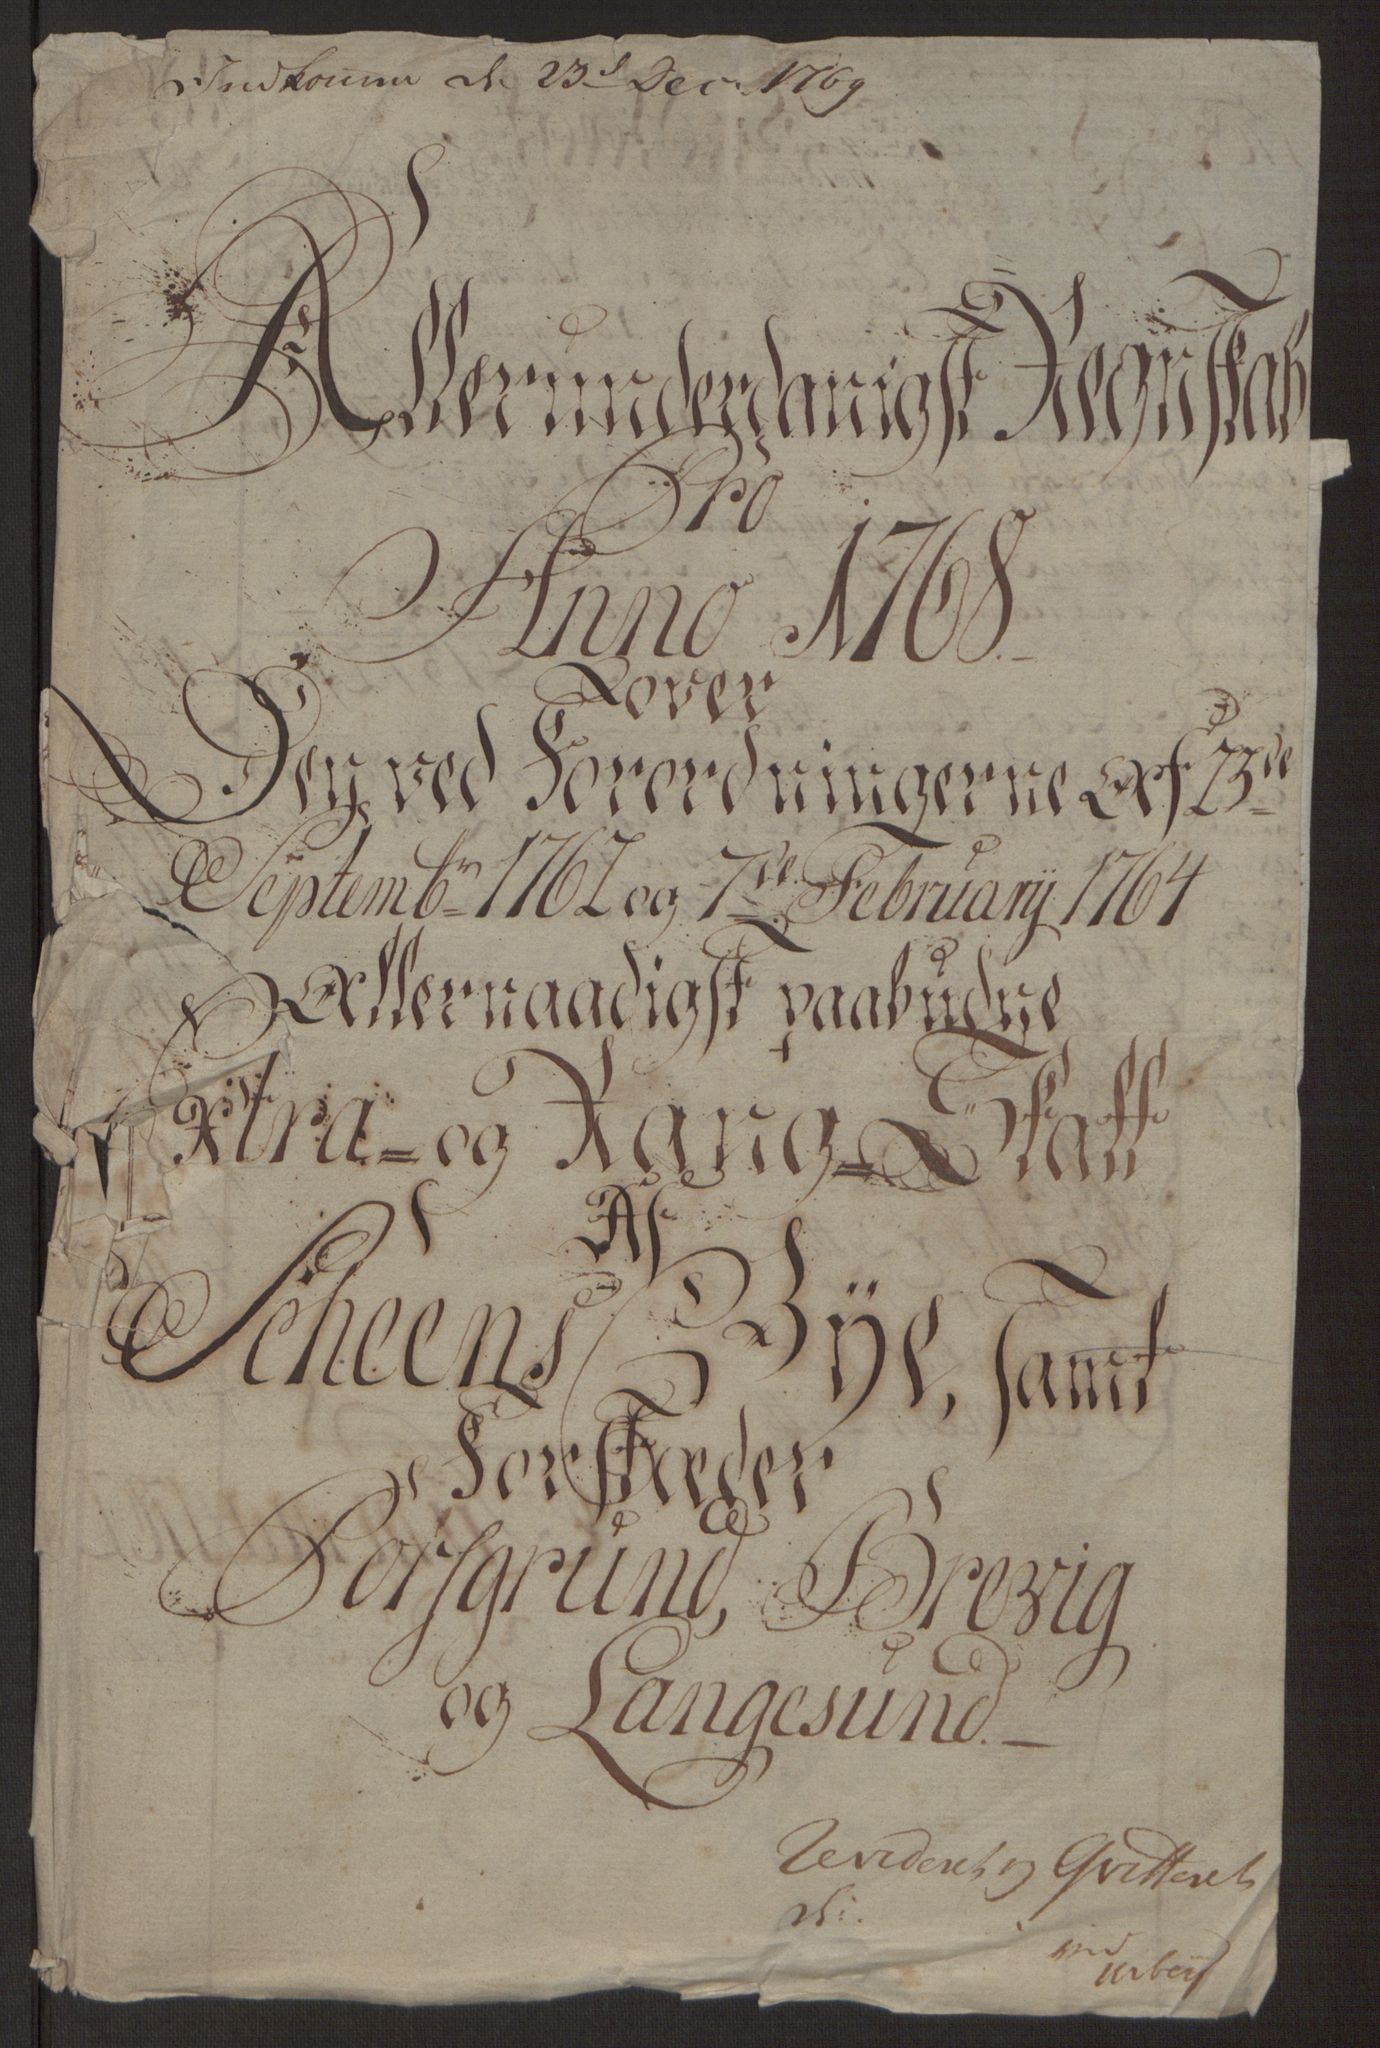 Indkomm d. 23d Dec. 1769
Allerunderdanigst Regnskab
Pro
Anno 1768.
over
Den ved Forordningerne af 23de
Septembr 1762 og 7de February 1764
Allernaadigst paabudne
Extra- og Rang-Skatt
Af
Scheens Bÿe, samt
Forstæder
Porsgrund, Brevig
og Langesund.
Revideret og Qvitteret
d: